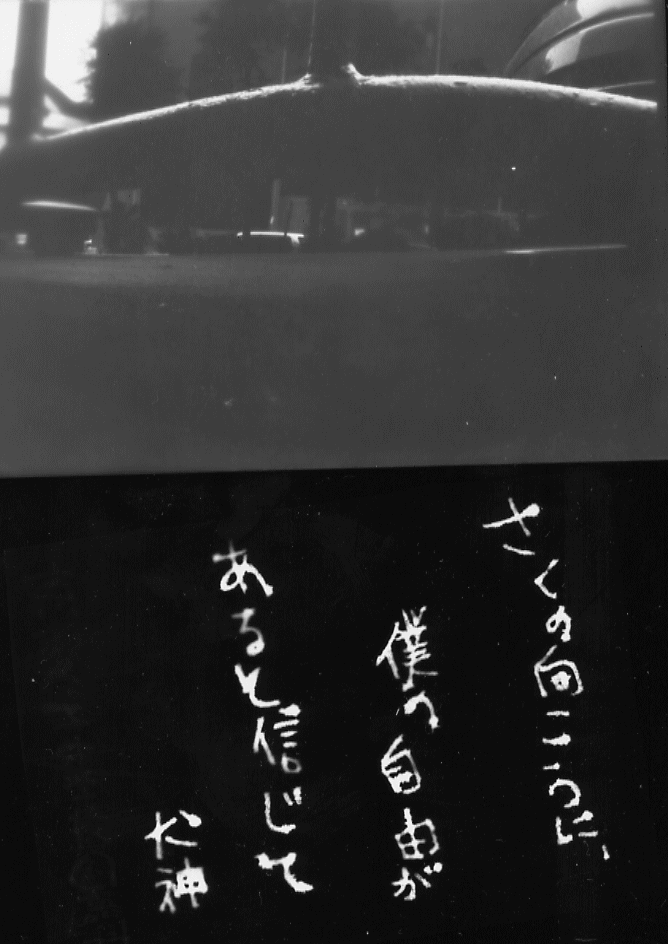 さくの向こうに
僕の自由が
あると信じて
犬神